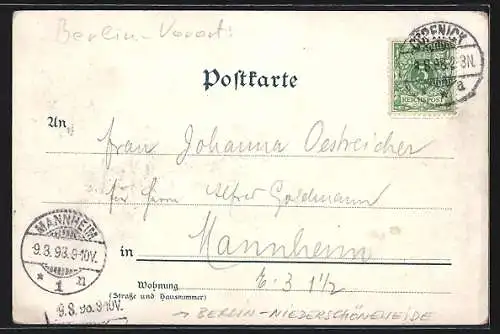 Berlin-Vorort:
CÖPENICK
8.3.98.2-3N.
a
5
REICHSPOST
Postkarte
An Frau Johanna Oestreicher
für Herrn Alfred Goldmann
in Mannheim
MANNHEIM
9.3.98.9-10V.
* 1 n
Wohnung E. 3 1½
(Straße und Hausnummer)
9.3.98.9-10V.
→ BERLIN-NIEDERSCHÖNEWEIDE